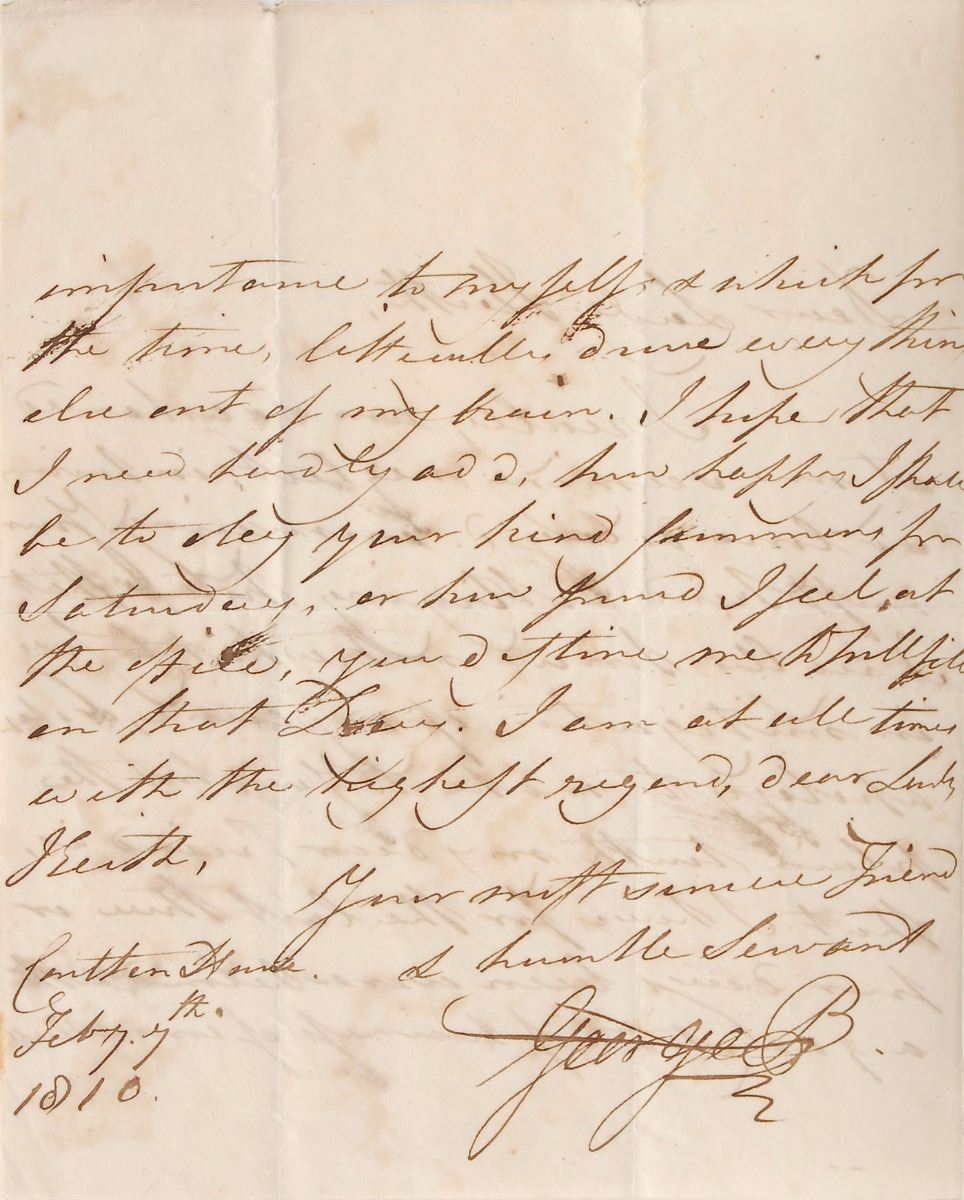 importance to myself, & which for
the time, litterally, drove every thing
else out of my brain. I hope that
I need hardly add, how happy I shall
be to obey your kind Summons for
Saturday, or how proud I feel, at
the office, you destine me to fullfill
on that Day. I am at all times
with the highest regard, dear Lady
Keith,
Your most sincere Friend
& humble Servant
Carlton House.
Feby. 7th.
1810.
George P.